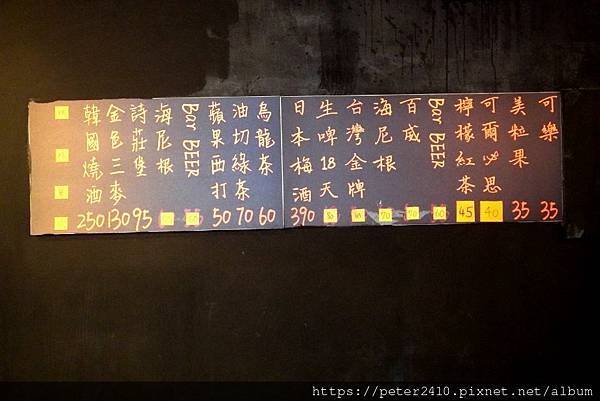 可樂 35
美粒果 35
可爾必思 40
檸檬紅茶 45
Bar BEER 60
百威 70
海尼根 70
台灣金牌
生啤18天
日本梅酒 390
烏龍茶 60
油切綠茶 70
蘋果西打 50
Bar BEER
海尼根
詩莊堡 95
金色三麥 130
韓國燒酒 250
https://peter2410.pixnet.net/album